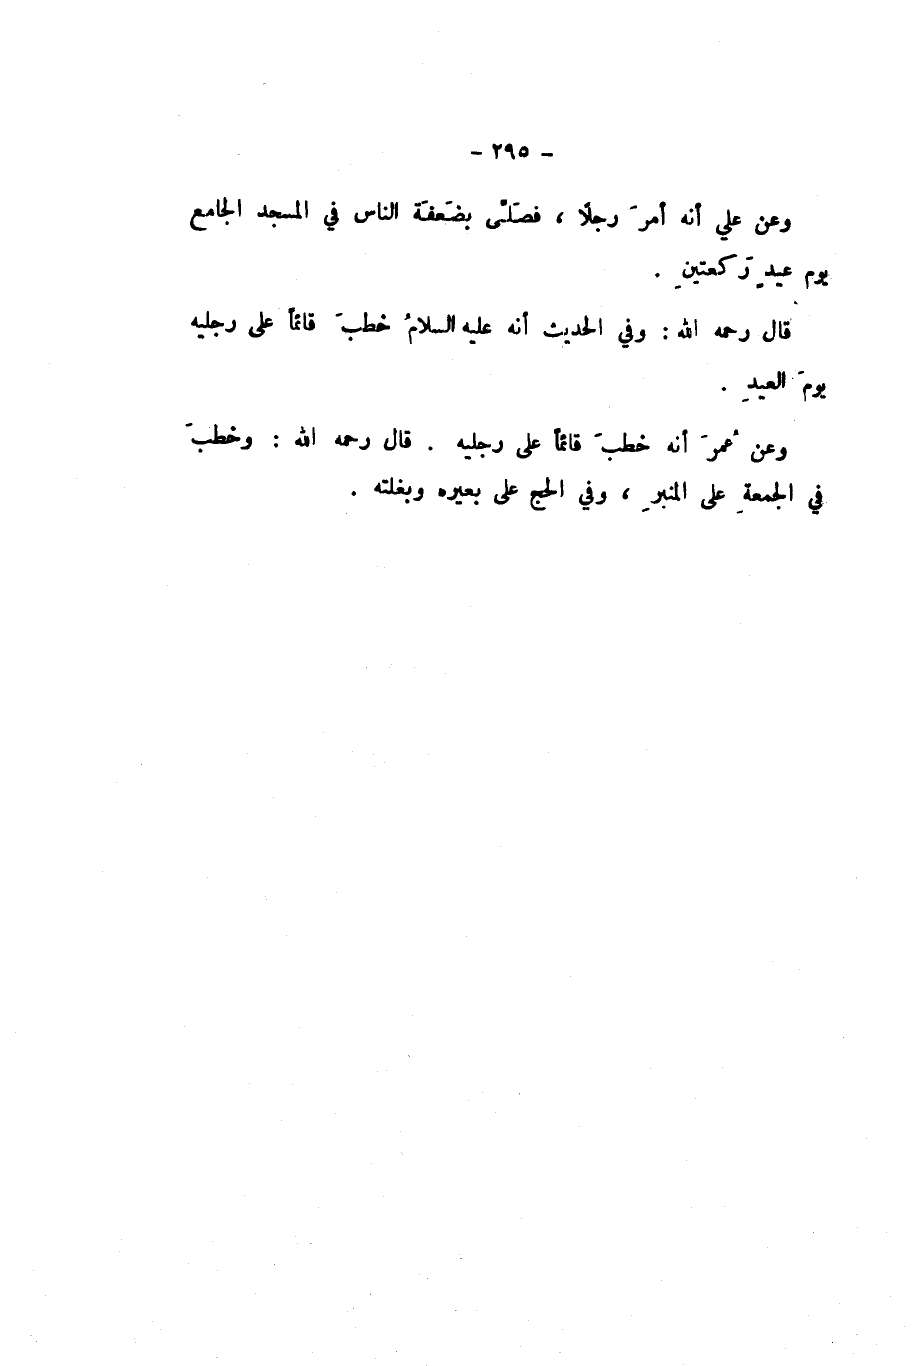 - ٢٩٥ -
وعن علي أنه أمرَ رجلًا ، فصَلَّى بضَعفَة الناس في المسجد الجامع
يوم عيدٍ رَكعتينِ .
قال رحمه الله : وفي الحديث أنه عليه السلامُ خطبَ قائماً على رجليه
يومَ العيدِ .
وعن عُمرَ أنه خطبَ قائماً على رجليه . قال رحمه الله : وخطبَ
في الجمعةِ على المنبرِ ، وفي الحج على بعيره وبغلته .